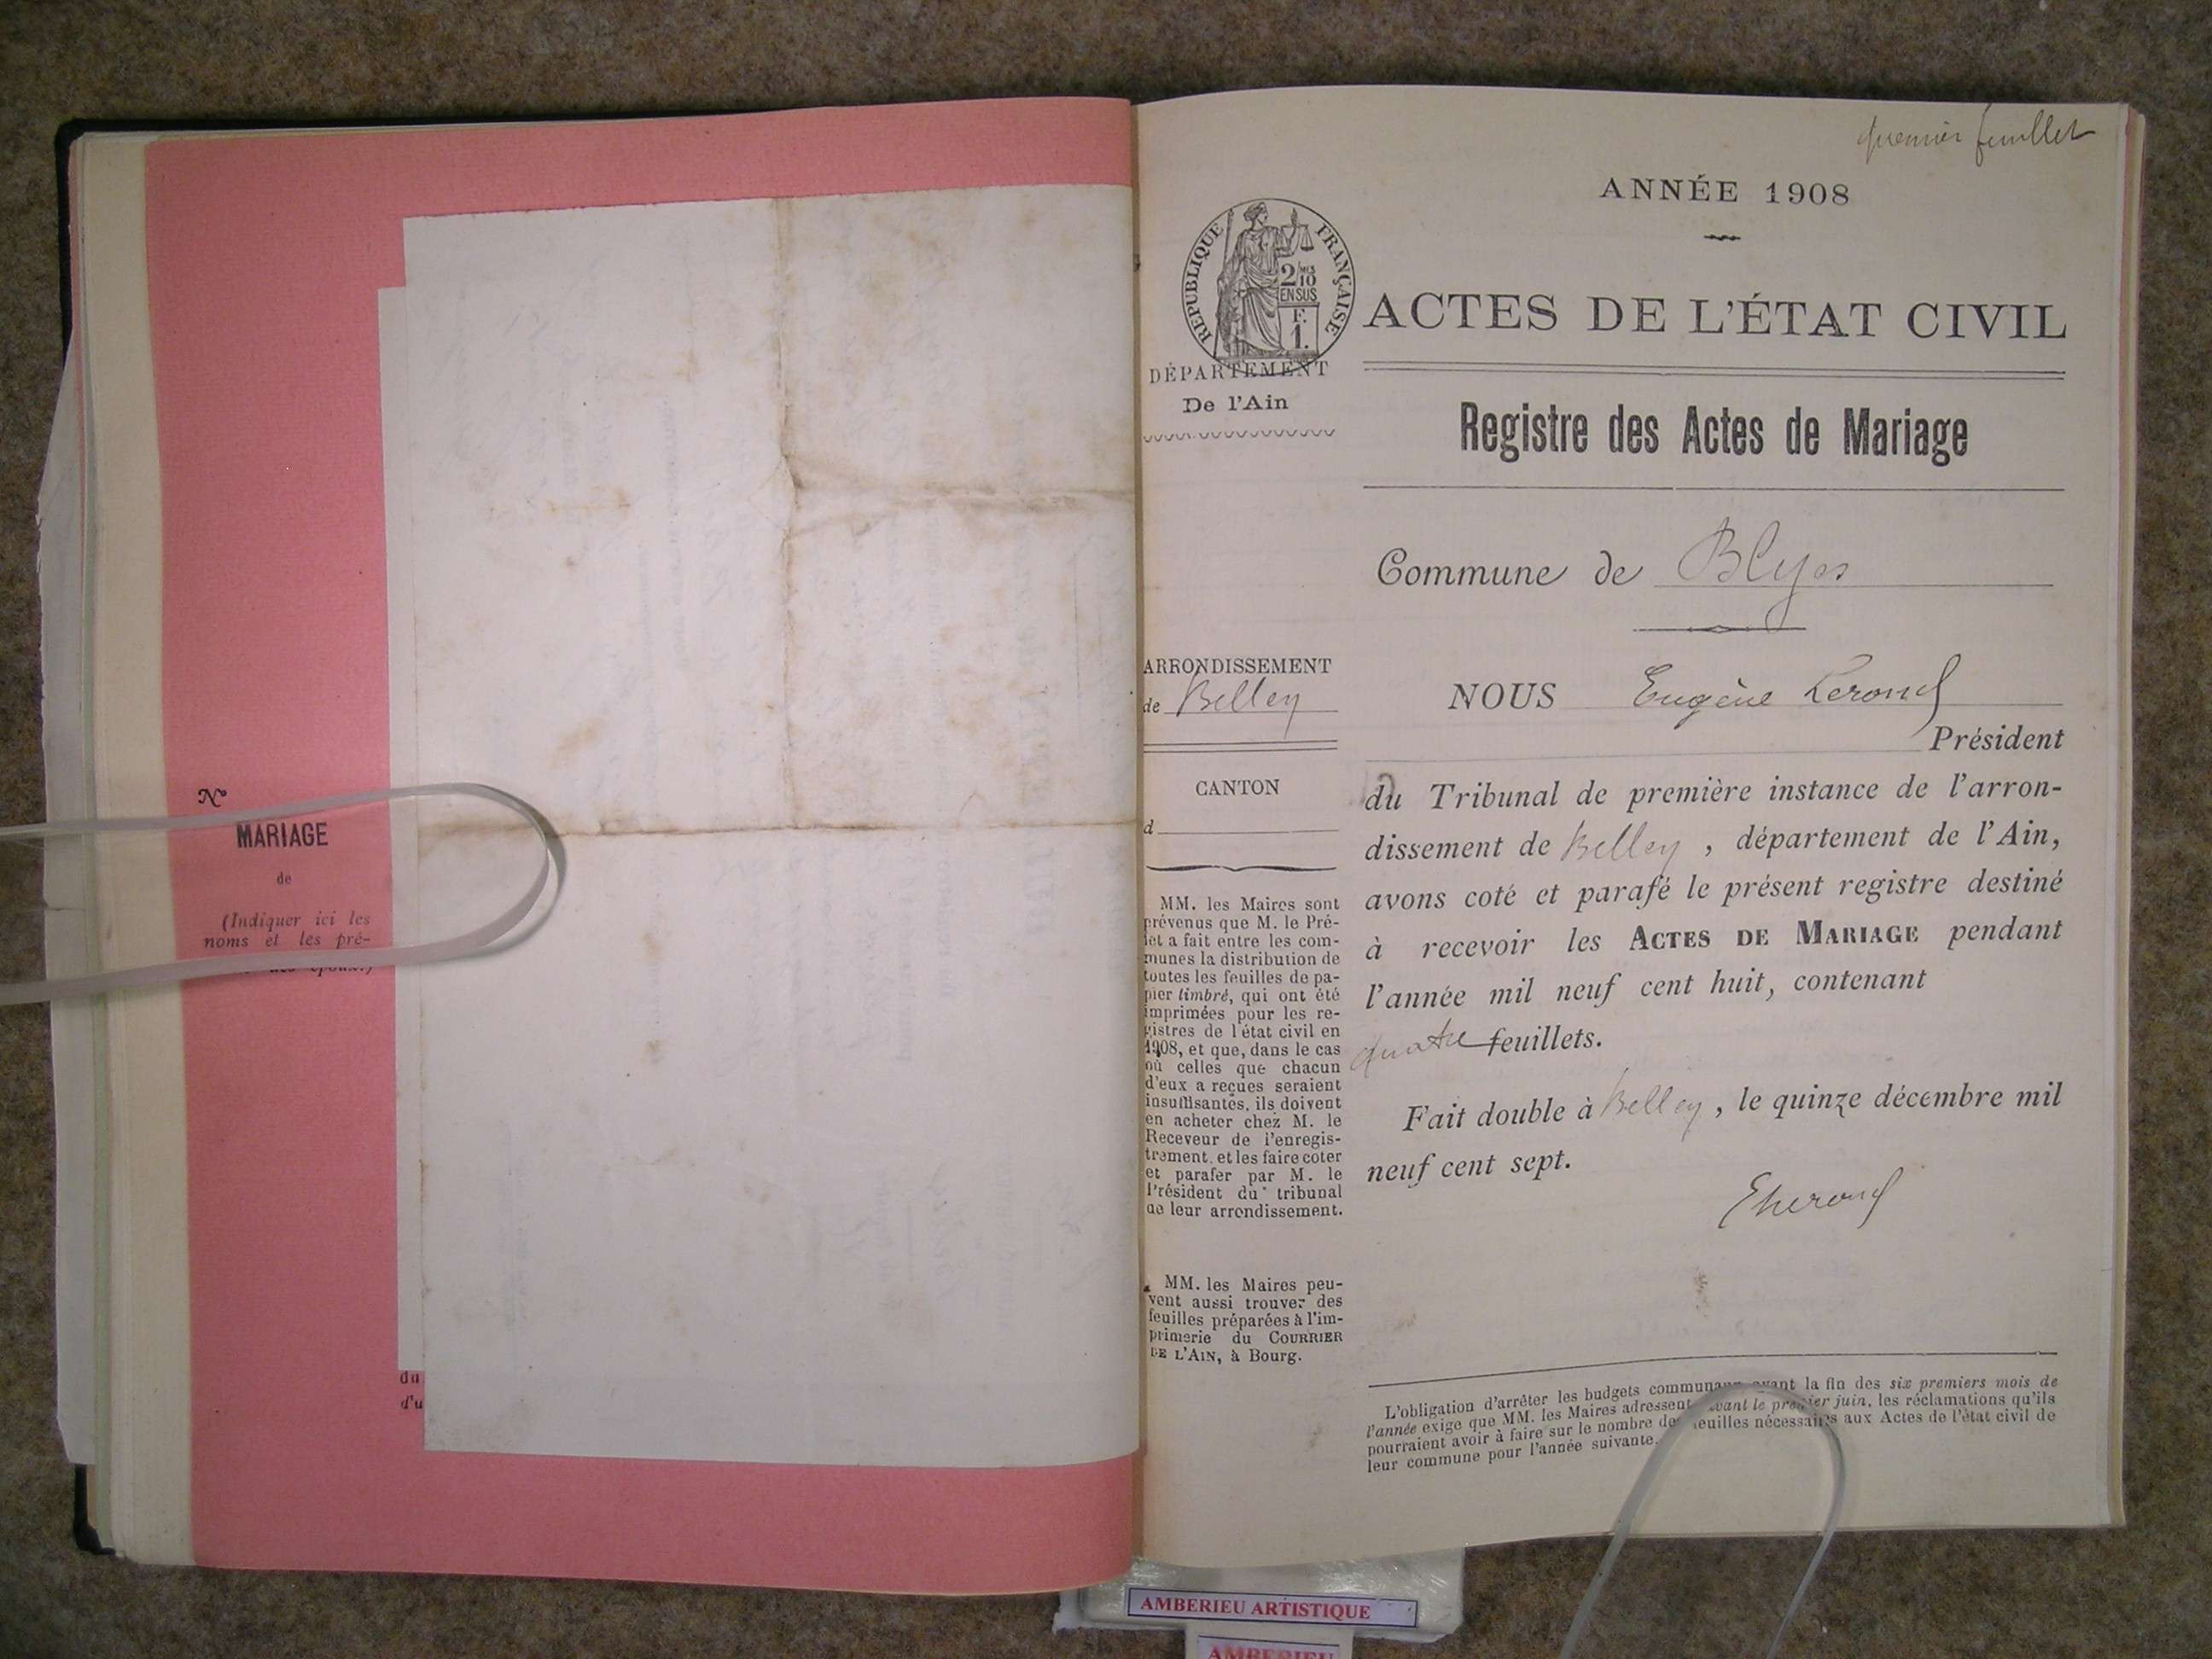 N°
MARIAGE
de
(Indiquer ici les
noms et les pré-
des époux.)
du
d'u
premier feuillet
ANNÉE 1908
RÉPUBLIQUE FRANÇAISE
2/10 MES
EN SUS
F.
1.
ACTES DE L'ÉTAT CIVIL
DÉPARTEMENT
De l'Ain
Registre des Actes de Mariage
Commune de Blyes
ARRONDISSEMENT
de Belley
CANTON
d
MM. les Maires sont
prévenus que M. le Pré-
fet a fait entre les com-
munes la distribution de
toutes les feuilles de pa-
pier timbré, qui ont été
imprimées pour les re-
gistres de l'état civil en
1908, et que, dans le cas
où celles que chacun
d'eux a reçues seraient
insuffisantes, ils doivent
en acheter chez M. le
Receveur de l'enregis-
trement, et les faire coter
et parafer par M. le
Président du tribunal
de leur arrondissement.
MM. les Maires peu-
vent aussi trouver des
feuilles préparées à l'im-
primerie du COURRIER
DE L'AIN, à Bourg.
NOUS Eugène
Président
du Tribunal de première instance de l'arron-
dissement de Belley, département de l'Ain,
avons coté et parafé le présent registre destiné
à recevoir les ACTES DE MARIAGE pendant
l'année mil neuf cent huit, contenant
quatre feuillets.
Fait double à Belley, le quinze décembre mil
neuf cent sept.
L'obligation d'arrêter les budgets communaux avant la fin des six premiers mois de
l'année exige que MM. les Maires adressent, avant le premier juin, les réclamations qu'ils
pourraient avoir à faire sur le nombre de feuilles nécessaires aux Actes de l'état civil de
leur commune pour l'année suivante.
AMBERIEU ARTISTIQUE
AMBERIEU